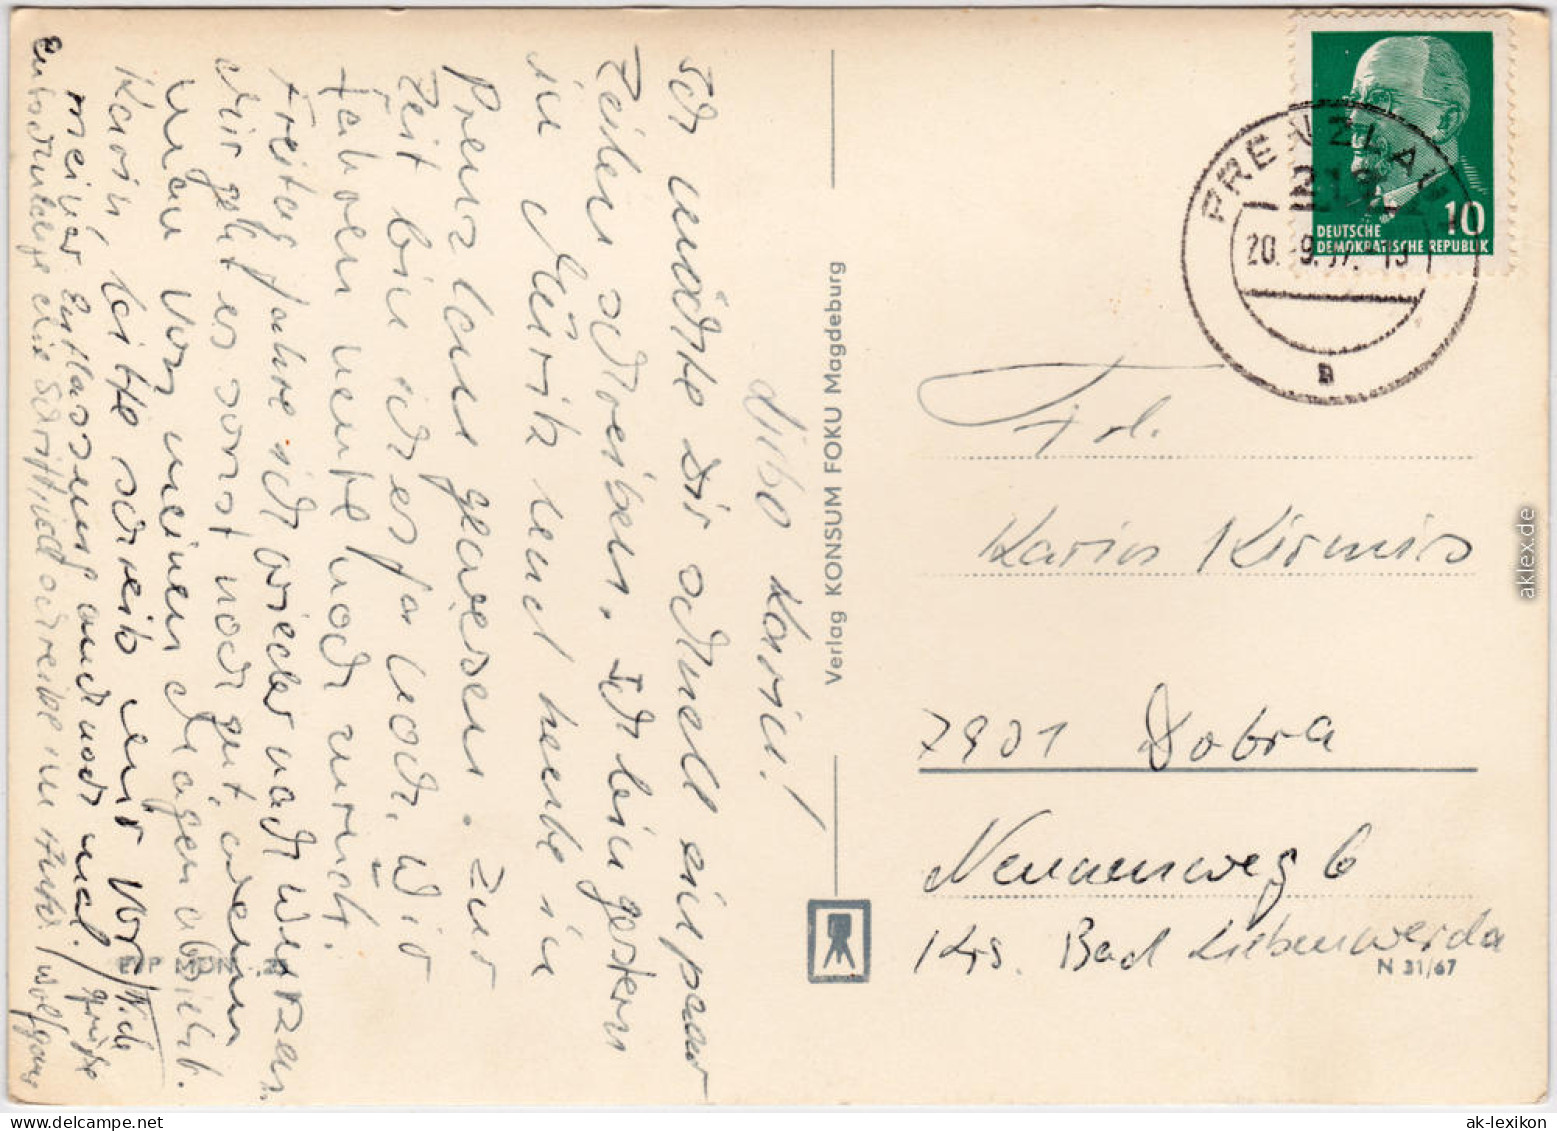 Liebe Karin!
Ich möchte Dir schnell ein paar
Zeilen schreiben. Ich bin gestern
in Müritz und heute in
Prenzlau gewesen. Zur
Zeit bin ich es ja noch. Wir
fahren heute noch zurück.
Freitag fahre ich wieder nach Wurzen
Mir geht es sonst noch gut, wenn
man von meinem Magen absieht.
Karin, bitte schreib mir vor
meiner Entlassung auch noch mal.
Entschuldige die Schrift ich schreibe im Auto. Wolfgang
Verlag KONSUM FOKU Magdeburg
DEUTSCHE
DEMOKRATISCHE REPUBLIK
10
PRENZLAU
213
20. -9. 67. -13
a
Frl.
Karin Kirmis
7901 Dobra
Neunenweg 6
Krs. Bad Liebenwerda
N 31/67
aklex.de
ak-lexikon